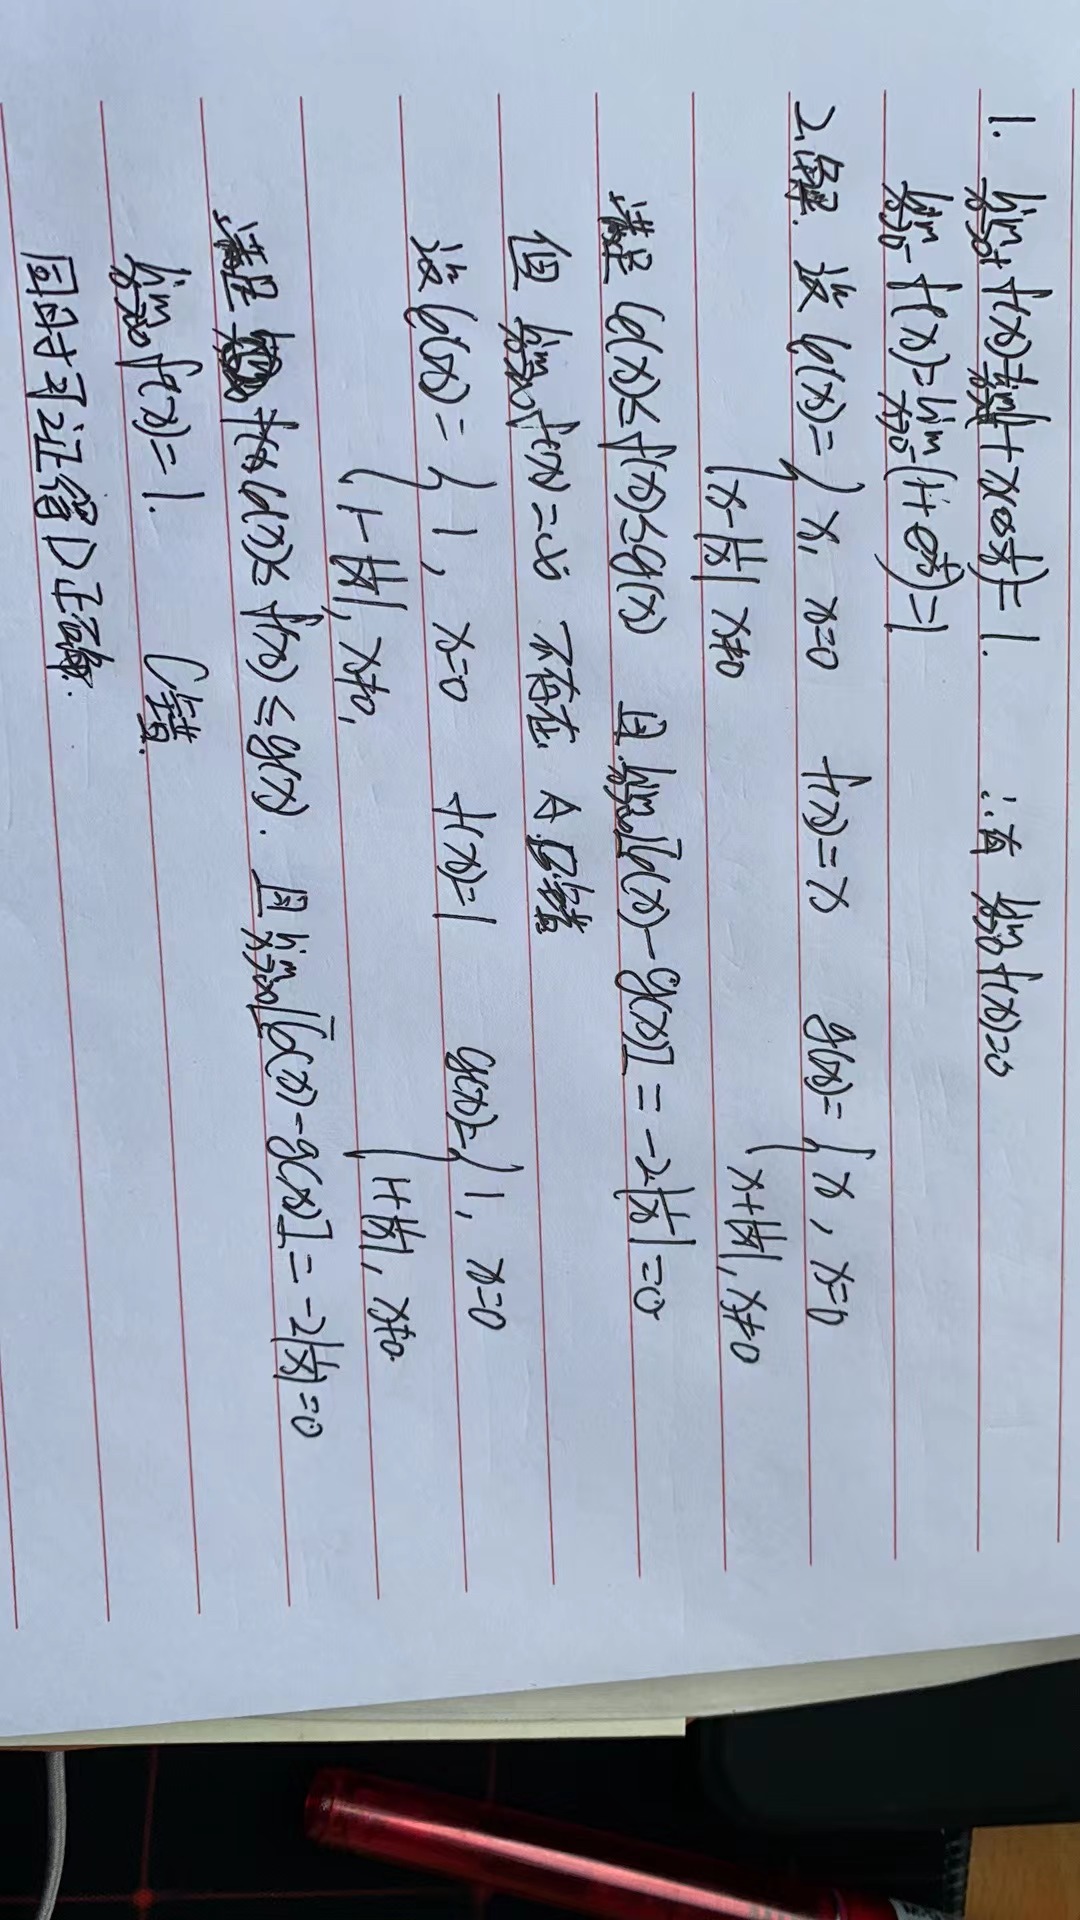 1. lim x→0+ f(x)=lim x→0+(1+xcos1/x)=1. ∴有 lim x→0 f(x)=0
lim x→0- f(x)=lim x→0-(1+e^{1/x})=1
2.解. 设 φ(x)={x, x=0 f(x)=x g(x)={x, x=0
x-|1/x| x≠0 x+|1/x|, x≠0
满足 φ(x)≤f(x)≤g(x) 且 lim x→∞[φ(x)-g(x)]=-2|1/x|=0
但 lim x→∞ f(x)=∞ 不存在. A.B.错
设 φ(x)={1, x=0 f(x)=1 g(x)={1, x=0
1-|1/x|, x≠0, 1+|1/x|, x≠0.
满足 φ(x)≤f(x)≤g(x). 且 lim x→∞[φ(x)-g(x)]=-2|1/x|=0
lim x→∞ f(x)=1. C错.
同时可证得D正确.